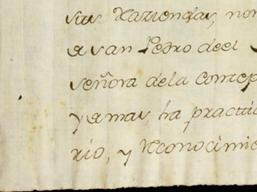 sus Haziendas, non
a san Pedro de el
señora de la Concep
y a mas ha practic
rio, y Reconocimie